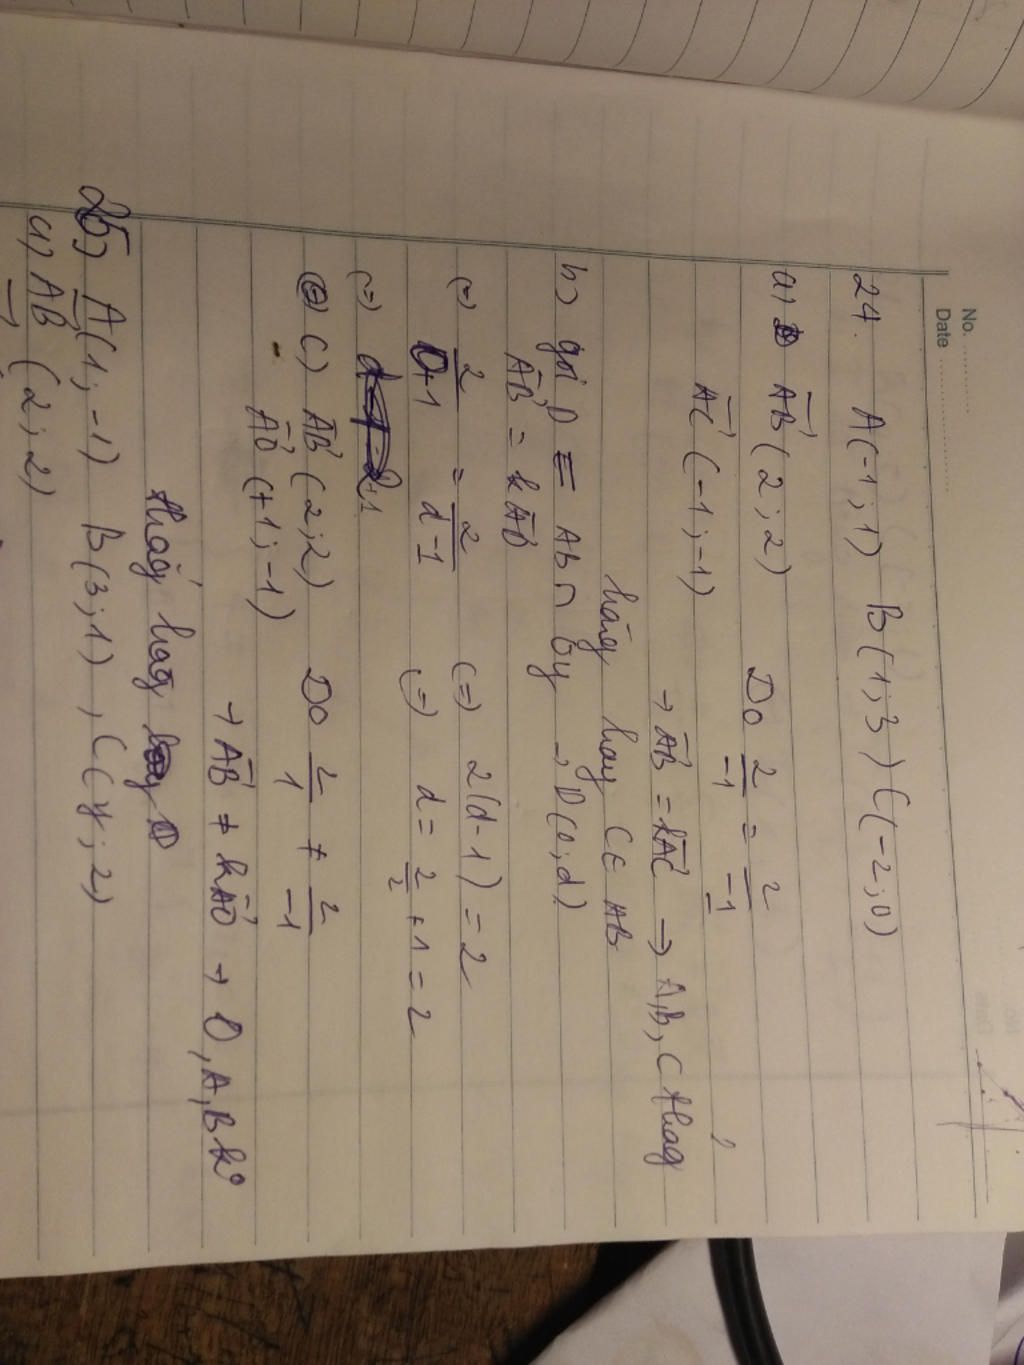 No. ............
Date ....................
24. A(-1;1) B(1;3) C(-2;0)
a) AB→ (2;2) Do 2/-1 = 2/-1
AC→ (-1;-1)
→ AB→ = kAC→ → A,B,C thag
hàng hay C∈ AB
b) gọi D = AB∩ Oy → D(0;d)
AB→ = kAD→
(=) 2/0+1 = 2/d-1 (=) 2(d-1) = 2
(=) d = 2/2 + 1 = 2
(=)
c) AB→ (2;2) Do 2/1 ≠ 2/-1
AO→ (+1;-1)
→ AB→ ≠ kAO→ → O,A,B ko
thag hag
25) A(1;-1) B(3;1), C(y;2)
a) AB→ (2;2)